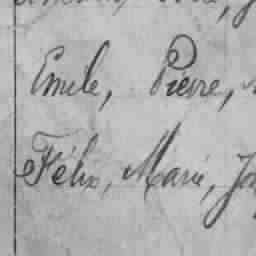 Emile, Pierre,
Félix, Marie, Jo